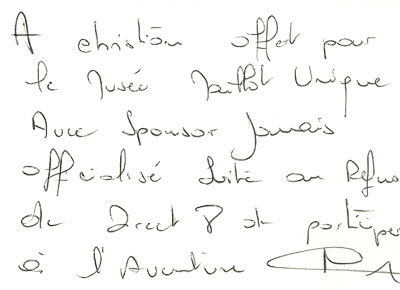 A christian offert pour
le Musée Maillot Unique
Avec Sponsor Jamais
officialisé suite au Refus
de Direct 8 de participer
à l'Aventure